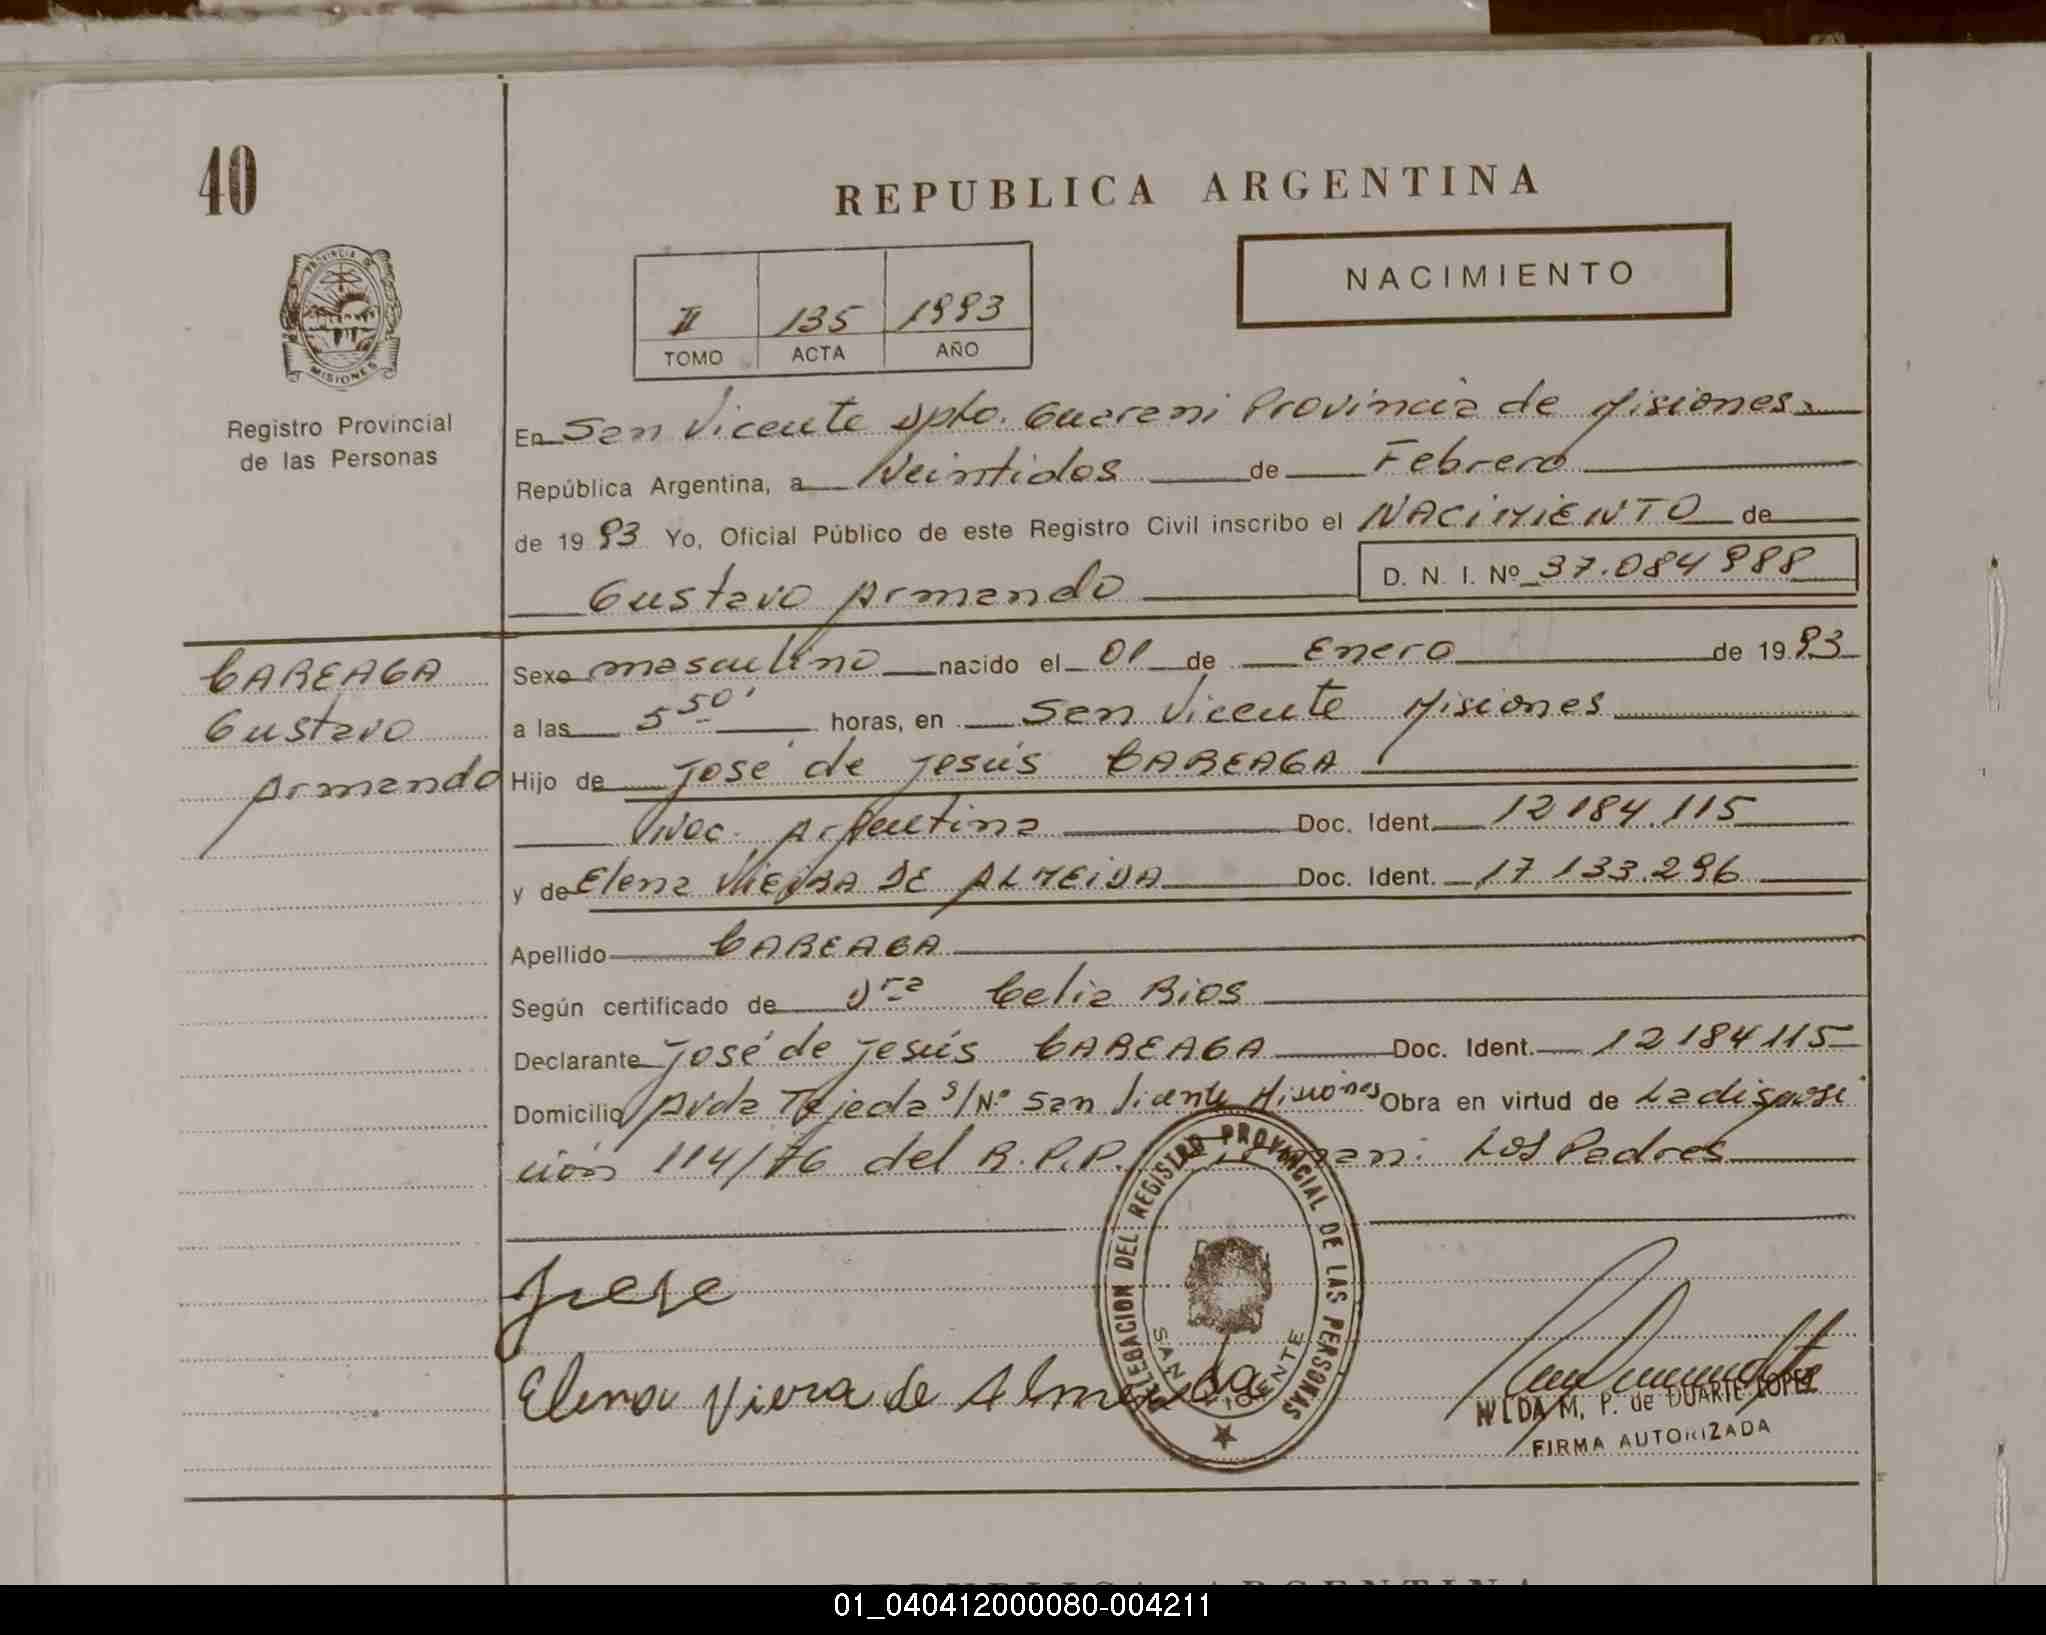 40
REPUBLICA ARGENTINA
NACIMIENTO
II 135 1993
TOMO ACTA AÑO
PROVINCIA DE
MISIONES
Registro Provincial
de las Personas
En San Vicente Dpto. Guarani Provincia de Misiones
República Argentina, a Veintidos de Febrero
de 1993 Yo, Oficial Público de este Registro Civil inscribo el NACIMIENTO de
Gustavo Armando D. N. I. Nº 37.084988
CAREAGA
Gustavo
Armando
Sexo masculino nacido el 01 de Enero de 1993
a las 5 50' horas, en San Vicente Misiones
Hijo de José de Jesús CAREAGA
Nac. Argentina Doc. Ident. 12184.115
y de Elena VIEIRA DE ALMEIDA Doc. Ident. 17 133.296
Apellido CAREAGA
Según certificado de Dra Celia Rios
Declarante José de Jesús CAREAGA Doc. Ident. 12184115
Domicilio Avda Tejeda S/Nº San Vicente Misiones Obra en virtud de La disposi
ción 114/76 del R.P.P. Los Padres
DELEGACION DEL REGISTRO PROVINCIAL DE LAS PERSONAS
SAN VICENTE
Elena Viera de Almeida
NILDA M. P. de DUARTE LOPEZ
FIRMA AUTORIZADA
REPUBLICA ARGENTINA
01_040412000080-004211